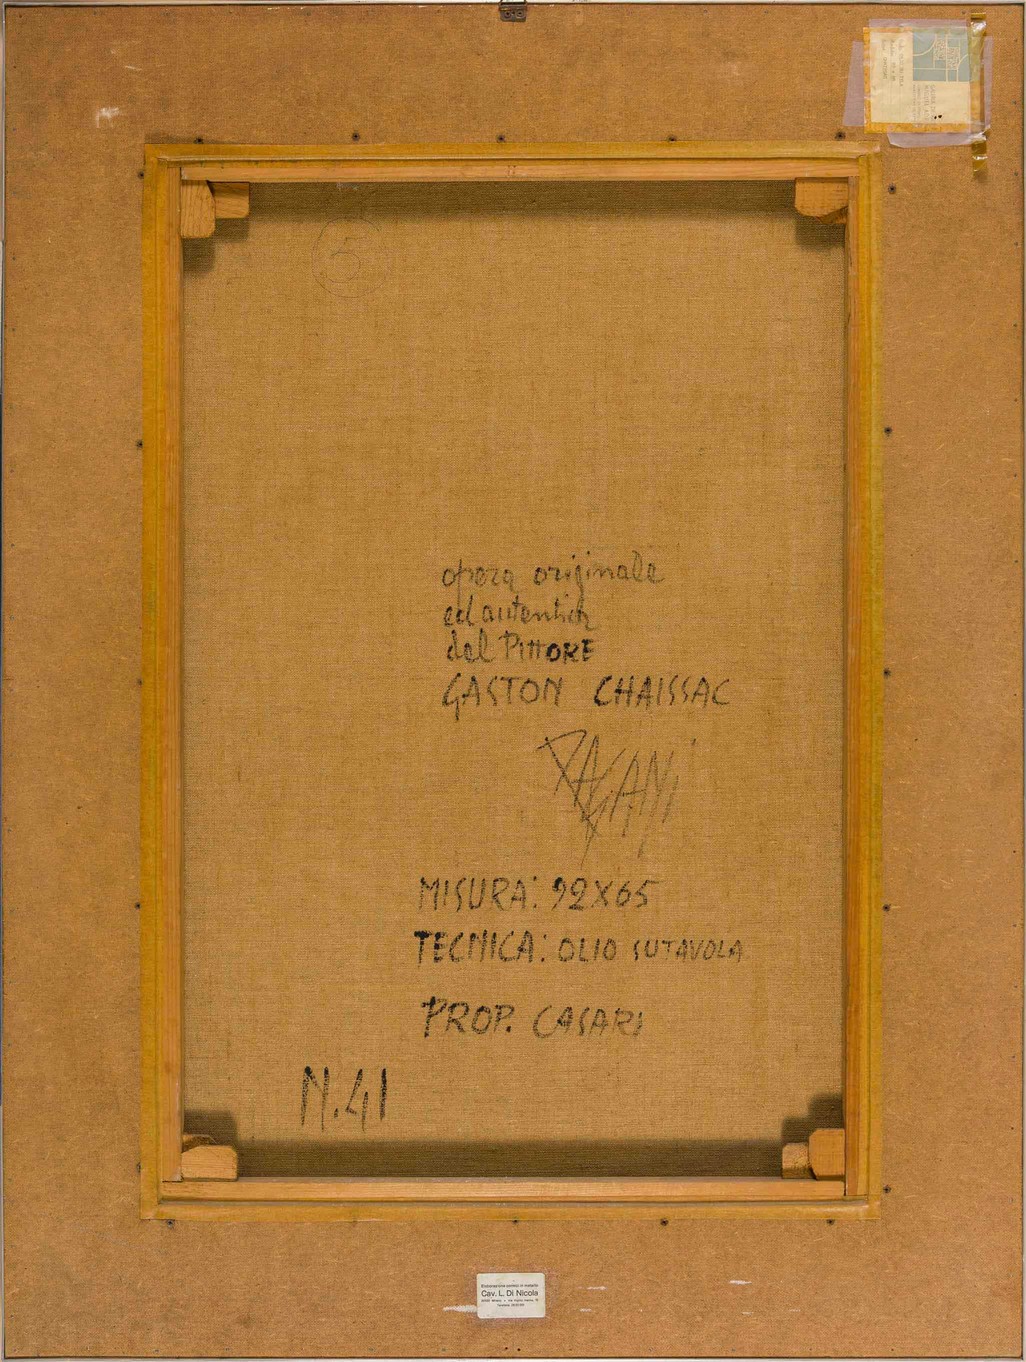 5
opera originale
ed autentica
del PITTORE
GASTON CHAISSAC
PAGANI
MISURA: 92X65
TECNICA: OLIO SUTAVOLA
PROP. CASARI
N.41
Cav. L. Di Nicola